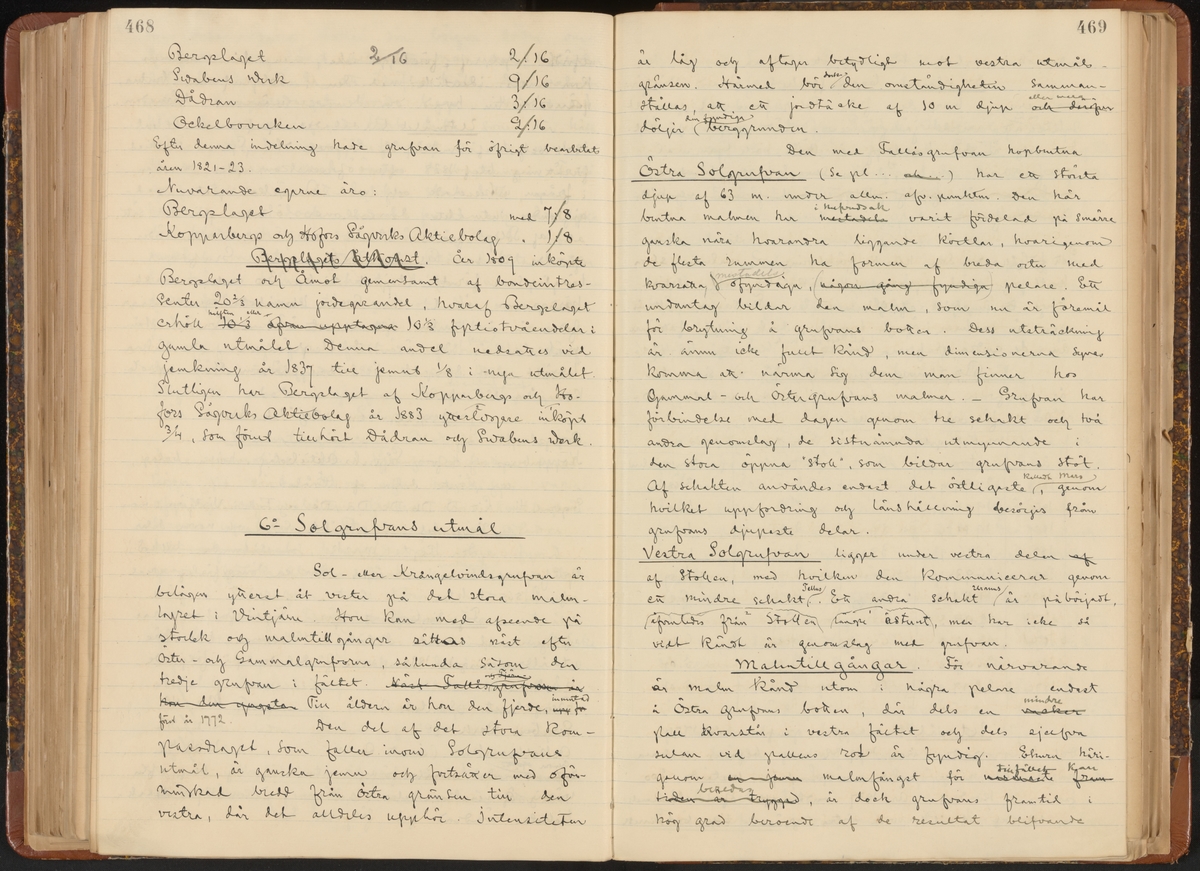 468
Bergslaget 2/16 2/16
Svabens Verk 9/16
Dådran 3/16
Ockelboverken 2/16
Efter denna indelning hade grufvan för öfrigt bearbetats
åren 1821-23.
Nuvarande egarne äro:
Bergslaget med 7/8
Kopparbergs och Hofors Sågverks Aktiebolag . 1/8
Bergslagets åtkomst. År 1809 inköpte
Bergslaget och Åmot gemensamt af bondeintres-
senter 20 2/3 namn jordegareandel, hvaraf Bergslaget
erhöll 10 1/3 ofvan upptagna 10 1/3 fyrtiotvåendelar i
gamla utmålet. Denna andel nedsattes vid
jemkning år 1837 till jemnt 1/8 i nya utmålet.
Slutligen har Bergslaget af Kopparbergs och Ho-
fors Sågverks Aktiebolag år 1883 ytterligare inköpt
3/4, som förut tillhört Dådran och Svabens Verk.
6o Solgrufvans utmål
Sol- eller Krångelvindsgrufvan är
belägen ytterst åt vester på det stora malm-
lagret i Vintjärn. Hon kan med afseende på
storlek och malmtillgångar sättas näst efter
Öster- och Gammalgrufvorna, sålunda såsom den
tredje grufvan i fältet. näst Fallåsgrufvan är
hon den yngsta Till åldern är hon den fjerde, inmutad
förd år 1772.
Den del af det stora kom-
passdraget, som faller inom Solgrufvans
utmål, är ganska jemn och fortsätter med oför-
minskad bredd från östra gränsen till den
vestra, där det alldeles upphör. Intensiteten
469
är låg och aftager betydligt mot vestra utmåls-
gränsen. Härmed bör dock den omständigheten samman-
ställas, att ett jordtäcke af 10 m djup eller mera och derofver
döljer den fyndiga berggrunden.
Den med Fallåsgrufvan hopbrutna
Östra Solgrufvan (se pl... ) har ett största
djup af 63 m. under allm. afv. punkten. Den här
brutna malmen har i hufvudsak mestadels varit fördelad på smärre
ganska nära hvarandra liggande körtlar, hvarigenom
de flesta rummen ha formen af breda orter med
kvarsatta mestadels ofyndiga, (någon gång fyndiga) pelare. Ett
undantag bildar den malm, som nu är föremål
för brytning å grufvans botten. Dess utsträckning
är ännu icke fullt känd, men dimensionerna synas
komma att närma sig dem man finner hos
Gammal- och Östergrufvans malmer. – Grufvan har
förbindelse med dagen genom tre schakt och två
andra genomslag, de sistnämnda utmynnande i
den stora öppna "Stoll", som bildar grufvans stöt.
Af schakten användes endast det östligaste, kalladt Mars, genom
hvilket uppfordring och länshållning besörjes från
grufvans djupaste delar.
Vestra Solgrufvan ligger under vestra delen af
af Stollen, med hvilken den kommunicerar genom
ett mindre schakt Tellus. Ett andra schakt Uranus är påbörjadt,
(aftändes från Stollen längre österut, men har icke så
vidt kändt är genomslag med grufvan.
Malmtillgångar. För närvarande
är malm känd utom i några pelare endast
å Östra grufvans botten, där dels en mindre
pall kvarstår i vestra fältet och dels sjelfva
sulan vid pallens rot är fyndig. Ehuru häri-
genom en jemn malmfånget för tillfället Kjan fram-
tiden är tryggad, är dock grufvans framtid i
hög grad beroende af de resultat blifvande